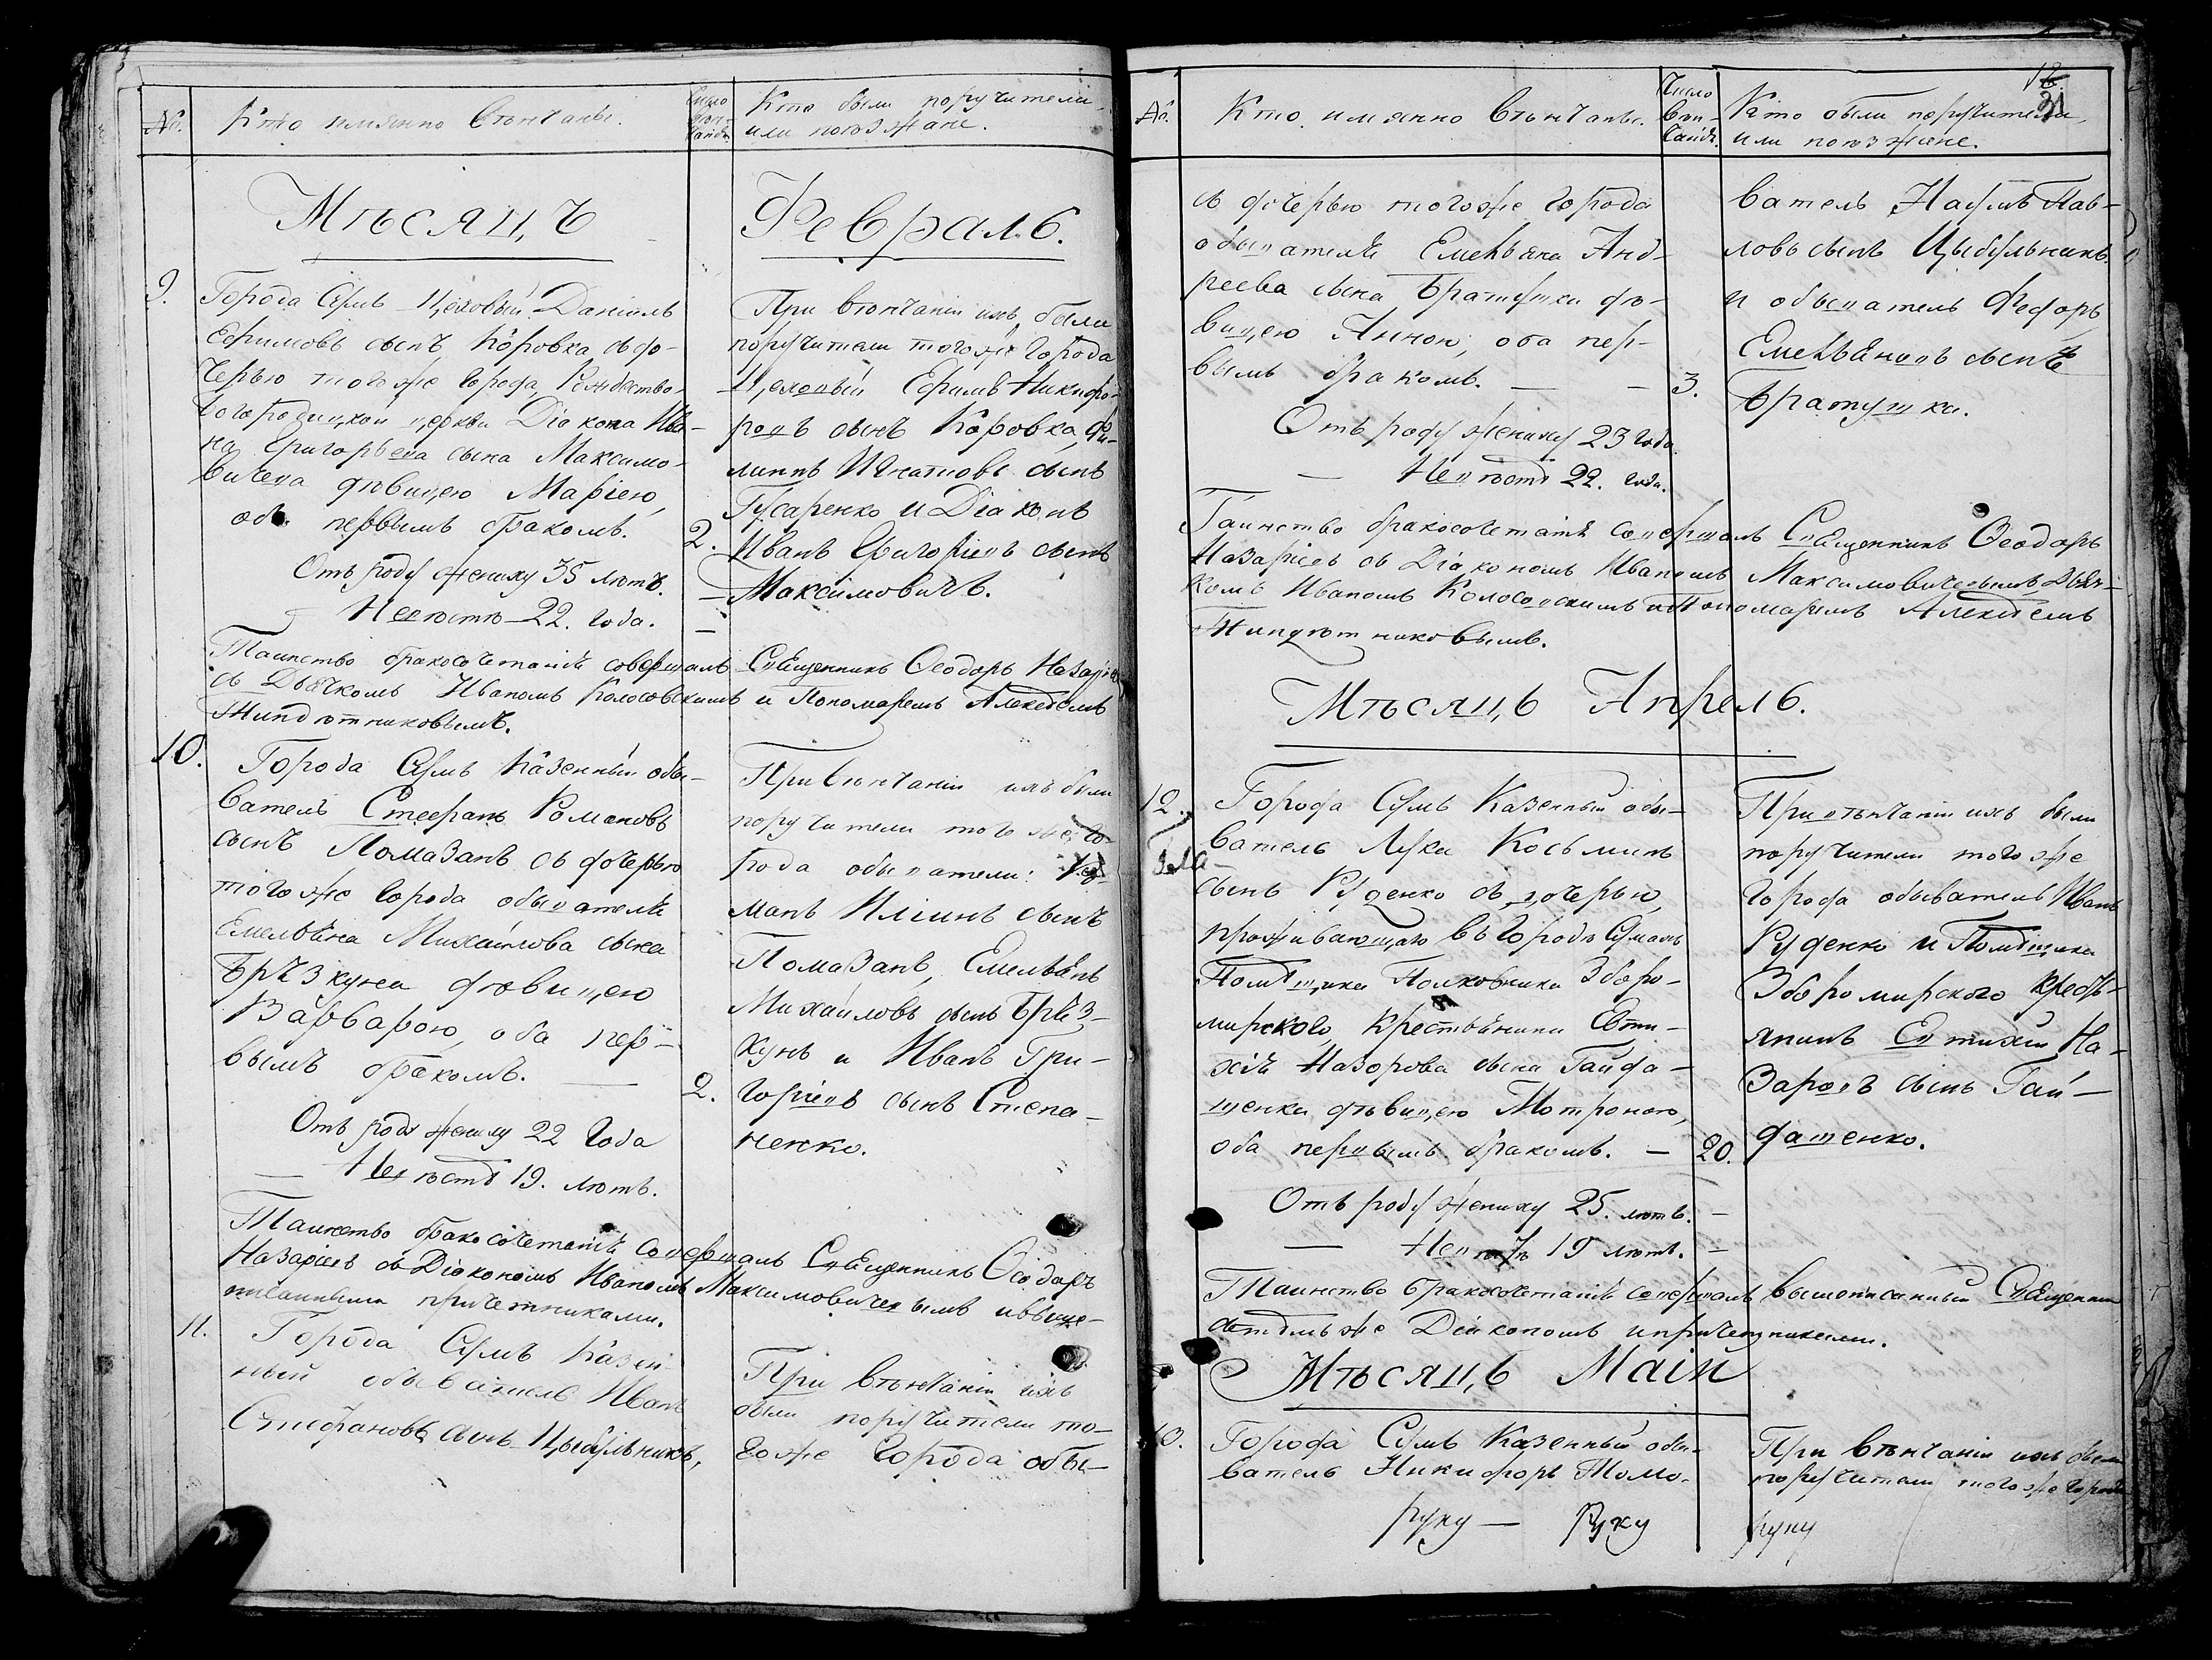 №.
Кто имянно вѣнчаны.
Число вѣн-
чанія.
Кто были поручители
или поѣзжане.
Мѣсяцъ
Февраль.
9.
Города Сумъ Цеховый Даніилъ
Ефимовъ сынъ Коровка съ до-
черью того же города, Рождество-
богородицкой церкви Діакона Ива-
на Григорьева сына Максимо-
вичева дѣвицею Маріею,
оба первымъ бракомъ.
2.
Отъ роду жениху 35 лѣтъ.
— Невѣстѣ 22. года.
При вѣнчаніи ихъ были
поручители того же города
Цеховый Ефимъ Никифо-
ровъ сынъ Коровка, Фи-
липпъ Игнатовъ сынъ
Гусаренко и Діаконъ
Иванъ Григоріевъ сынъ
Максимовичъ.
Таинство бракосочетанія совершалъ Священникъ Ѳеодоръ Назаріевъ
съ Дьячкомъ Иваномъ Колосовскимъ и Пономаремъ Алексѣемъ
10.
Города Сумъ Казенный обы-
ватель Стефанъ Романовъ
сынъ Помазанъ съ дочерью
того же города обывателя
Емельяна Михайлова сына
Брязкуна дѣвицею
Варварою, оба пер-
вымъ бракомъ. —
2.
Отъ роду жениху 22 года
— Невѣстѣ 19. лѣтъ.
При вѣнчаніи ихъ были
поручители того же го-
рода обыватели: Ро-
манъ Иліинъ сынъ
Помазанъ, Емельянъ
Михайловъ сынъ Бряз-
кунъ и Иванъ Гри-
горіевъ сынъ Степа-
ненко.
Таинство бракосочетанія совершалъ Священникъ Ѳеодоръ
Назаріевъ съ Діакономъ Иваномъ Максимовичевымъ и выше-
писанными причетниками.
11.
Города Сумъ Казен
ный обыватель Иванъ
Стефановъ сынъ Цыбульникъ,
При вѣнчаніи ихъ
были поручители то-
гоже города обы-
31
№.
Кто имянно вѣнчаны.
Число
вѣн-
чанія.
Кто были поручители,
или поѣзжане.
съ дочерью того же города
обывателя Емельяна Анд-
реева сына Братушки дѣ-
вицею Анною, оба пер-
вымъ бракомъ. — —
3.
Отъ роду жениху 23 года.
— Невѣстѣ 22. года.
ватель Наумъ Пав-
ловъ сынъ Цыбульникъ
и обыватель Федоръ
Емельяновъ сынъ
Братушка.
Таинство бракосочетанія совершалъ Священникъ Ѳеодоръ
Назаріевъ съ Діакономъ Иваномъ Максимовичевымъ, Дьяч-
комъ Иваномъ Колосовскимъ и Пономаремъ Алексѣемъ
Мѣсяцъ Апрель.
12.
Города Сумъ Казенный обы-
ватель Лука Косьминъ
сынъ Руденко съ дочерью,
проживающаго въ городѣ Сумахъ
Помѣщика Полковника Зборо-
мирского, крестьянина Евти-
хія Назорова сына Гайда-
шенка, дѣвицею Мотроною,
оба первымъ бракомъ. —
20.
Отъ роду жениху 25. лѣтъ. —
— Невѣстѣ 19 лѣтъ. —
При вѣнчаніи ихъ были
поручители того же
города обыватель Иванъ
Руденко и Помѣщика
Зборомирского крестъ-
янинъ Евтихій На-
заровъ сынъ Гай-
дашенко.
Таинство бракосочетанія совершалъ вышеписанный Священникъ
съ тѣмъ же Діакономъ и причетниками.
Мѣсяцъ Маій
13.
Города Сумъ Казенный обы-
ватель Никифоръ Томо-
При вѣнчаніи ихъ были
поручители того же города
руку — руку
руку